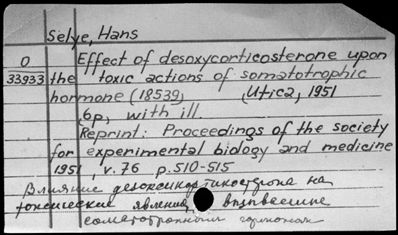 Selye, Hans
O Effect of desoxycorticosterone upon
33933 the toxic actions of somatotrophic
hormone (18539) Utica, 1951
6p, with ill.
Reprint: Proceedings of the society
for experimental biology and medicine
1951, v.76 p.510-515
Влияние дезоксикортикостерона на
токсические явления,
соматотропным гормоном